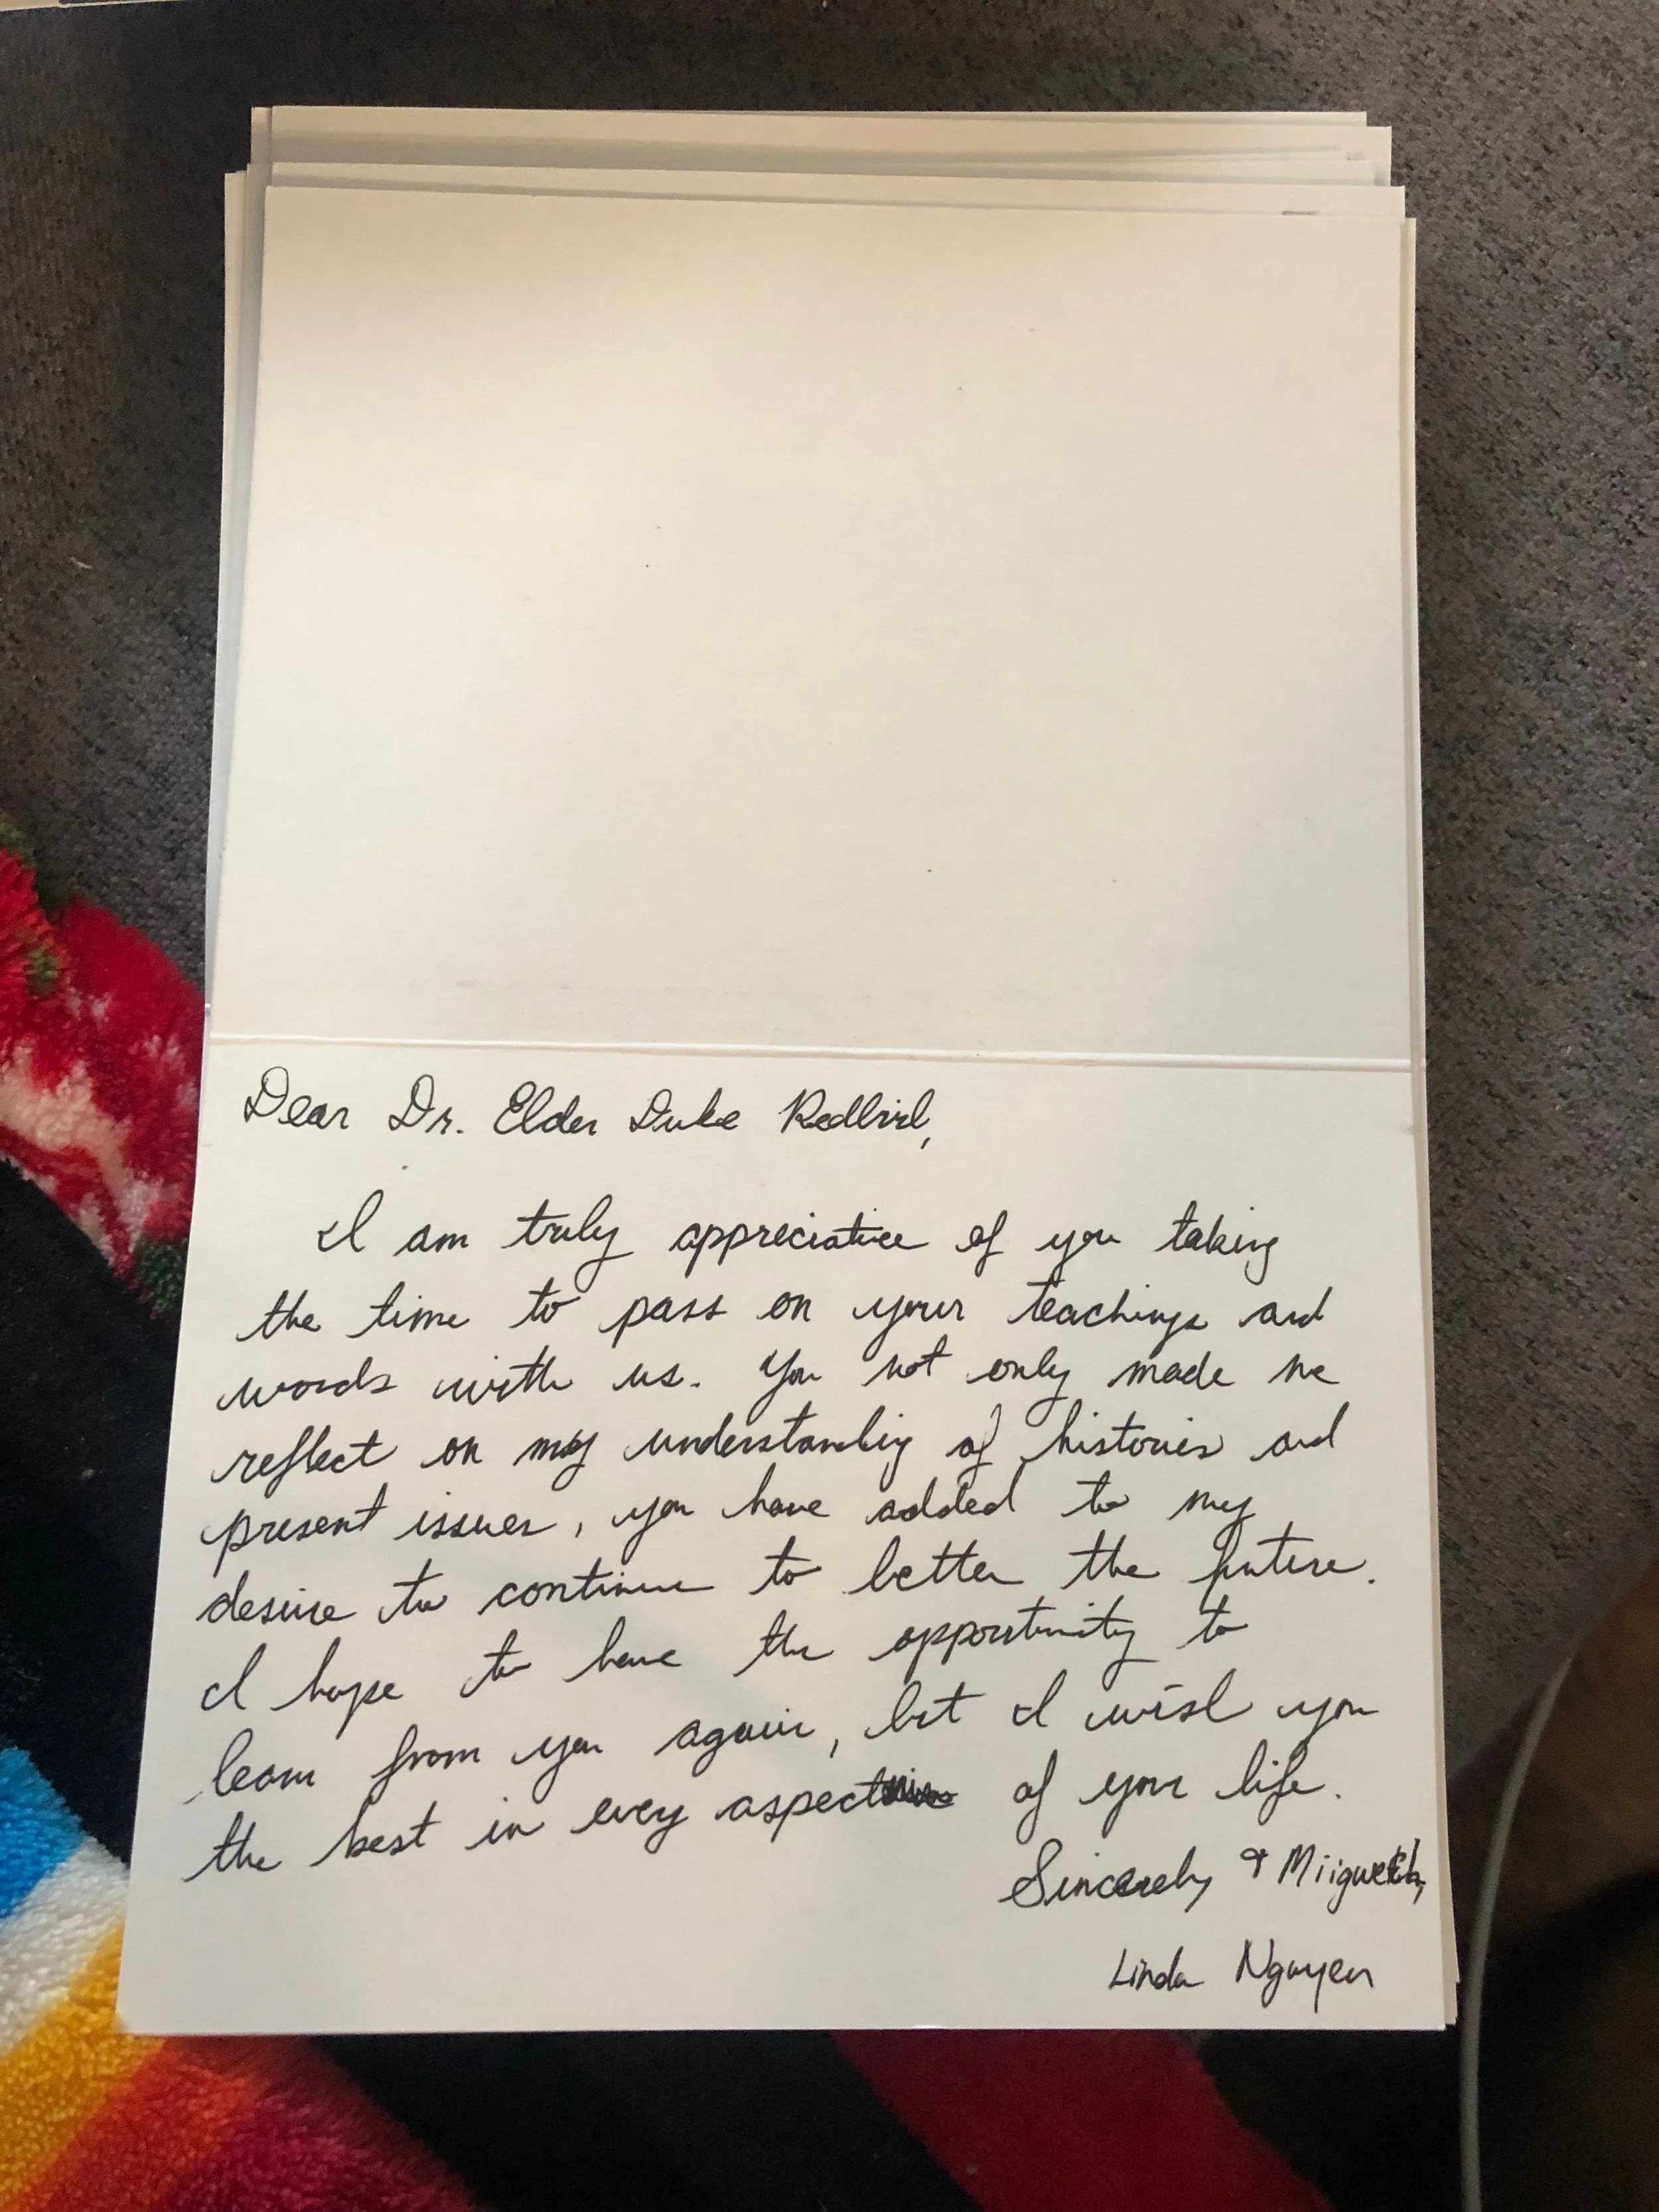 Dear Dr. Elder Duke Redbird,
I am truly appreciative of you taking
the time to pass on your teachings and
words with us. You not only made me
reflect on my understanding of histories and
present issues, you have added to my
desire to continue to better the future.
I hope to have the opportunity to
learn from you again, but I wish you
the best in every aspect of your life.
Sincerely & Miigwetch,
Linda Nguyen